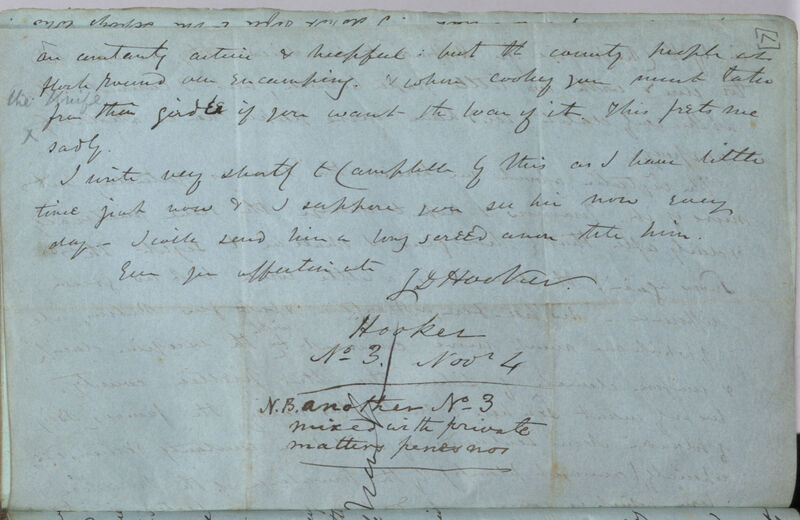 7
are constantly active & helpful: but the country people
flock round our encamping. & when cooking you must take
the knife
x
from their girdle if you want the loan of it. This frets me
sadly.
I write very shortly to Campbell by this as I have little
time just now & I suppose you see him now every
day — I will send him a long screed anon tell him.
Ever yr affectionate
J D Hooker.
Hooker
No 3. Novr 4
N.B. another No 3
mixed with private
matters penes nos